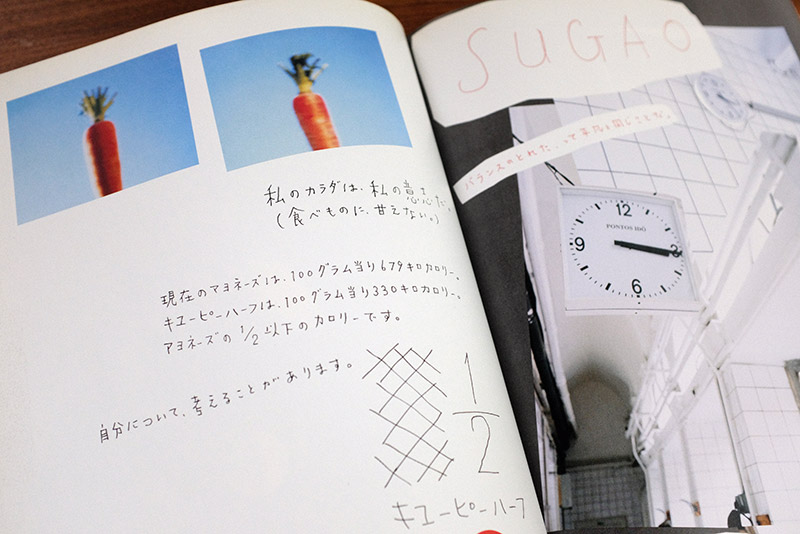 私のカラダは、私の意志だ。
(食べものに、甘えない。)
現在のマヨネーズは、100グラム当り679キロカロリー。
キユーピーハーフは、100グラム当り330キロカロリー。
マヨネーズの1/2以下のカロリーです。
自分について、考えることがあります。
1/2
キユーピーハーフ
SUGAO
バランスのとれた、って平凡と同じことだ。
12
PONTOS IDŐ
9 3
6